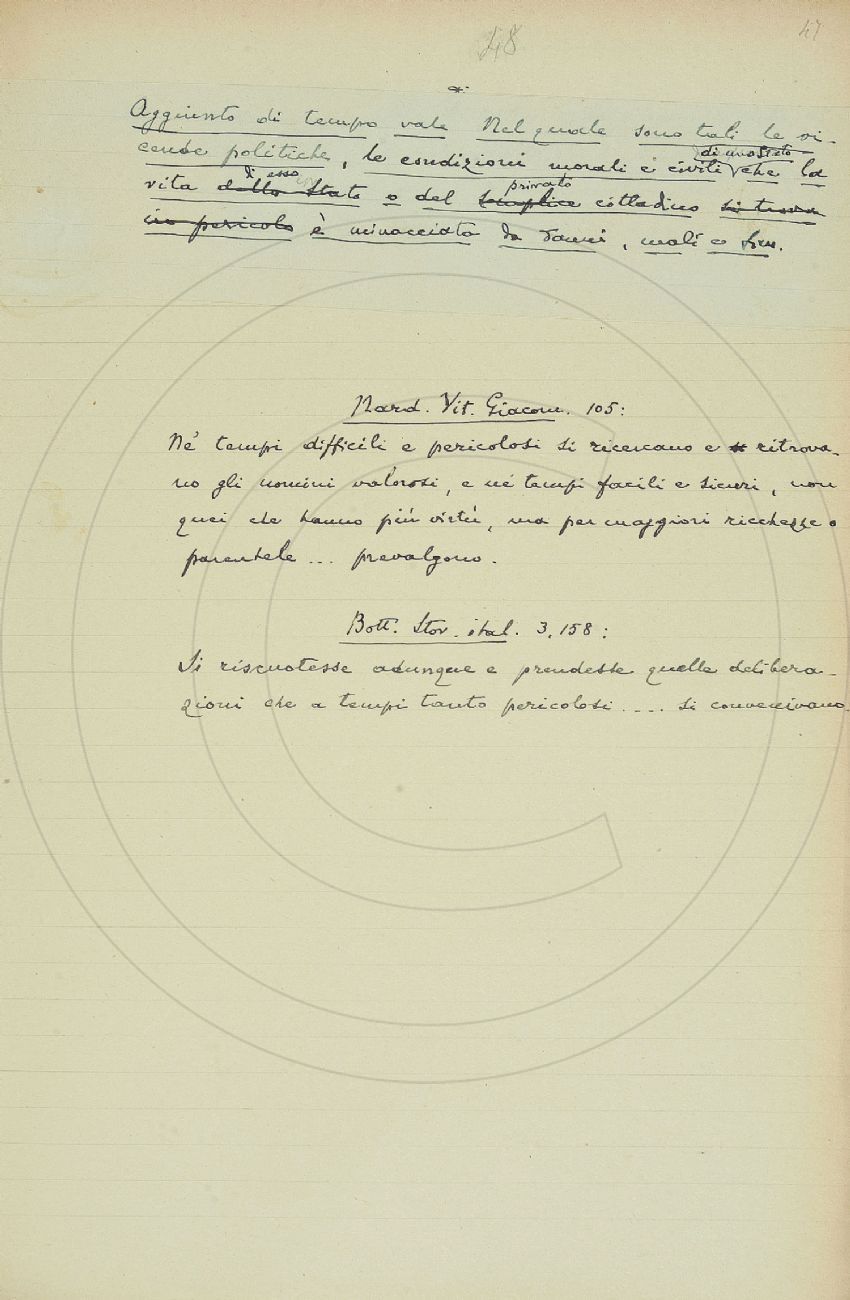 48
47
*
Aggiunto di tempo vale Nel quale sono tali le vi-
cende politiche, le condizioni morali e civili di uno Stato che la
vita di esso dello Stato o del privato semplice cittadino si trova
in pericolo è minacciata da danni, mali e sim.
Nard. Vit. Giacom. 105:
Ne' tempi difficili e pericolosi si ricercano e ritrova-
no gli uomini valorosi, e ne' tempi facili e sicuri, non
quei che hanno più virtù, ma per maggiori ricchezze o
parentele ... prevalgono.
Bott. Stor. ital. 3, 158:
Si riscuotesse adunque e prendesse quelle delibera-
zioni che a tempi tanto pericolosi .... si convenivano.